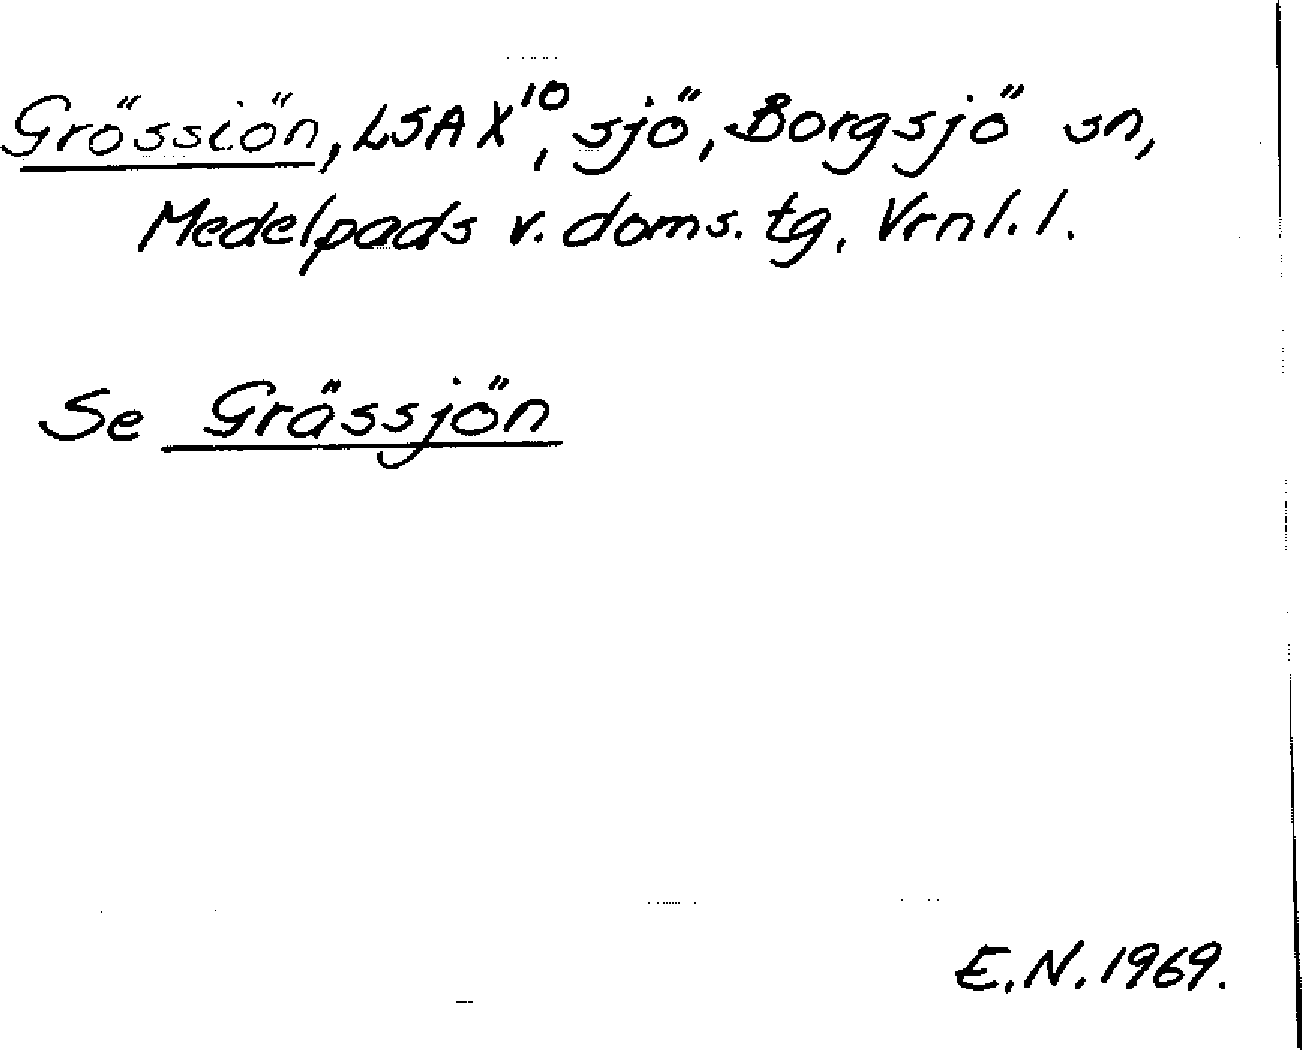 Grössiön, LSA X¹⁰, sjö, Borgsjö sn,
Medelpads v. doms. tg, Vrnl. l.
Se Grässjön
E.N. 1969.